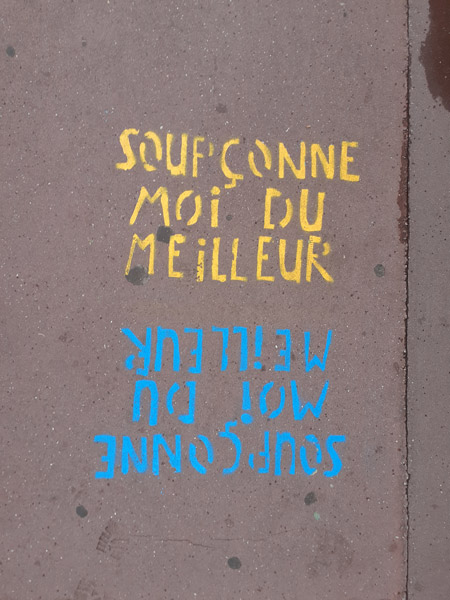 SOUPÇONNE
MOi DU
MEiLLEUR
SOUPÇONNE
MOi DU
MEiLLEUR